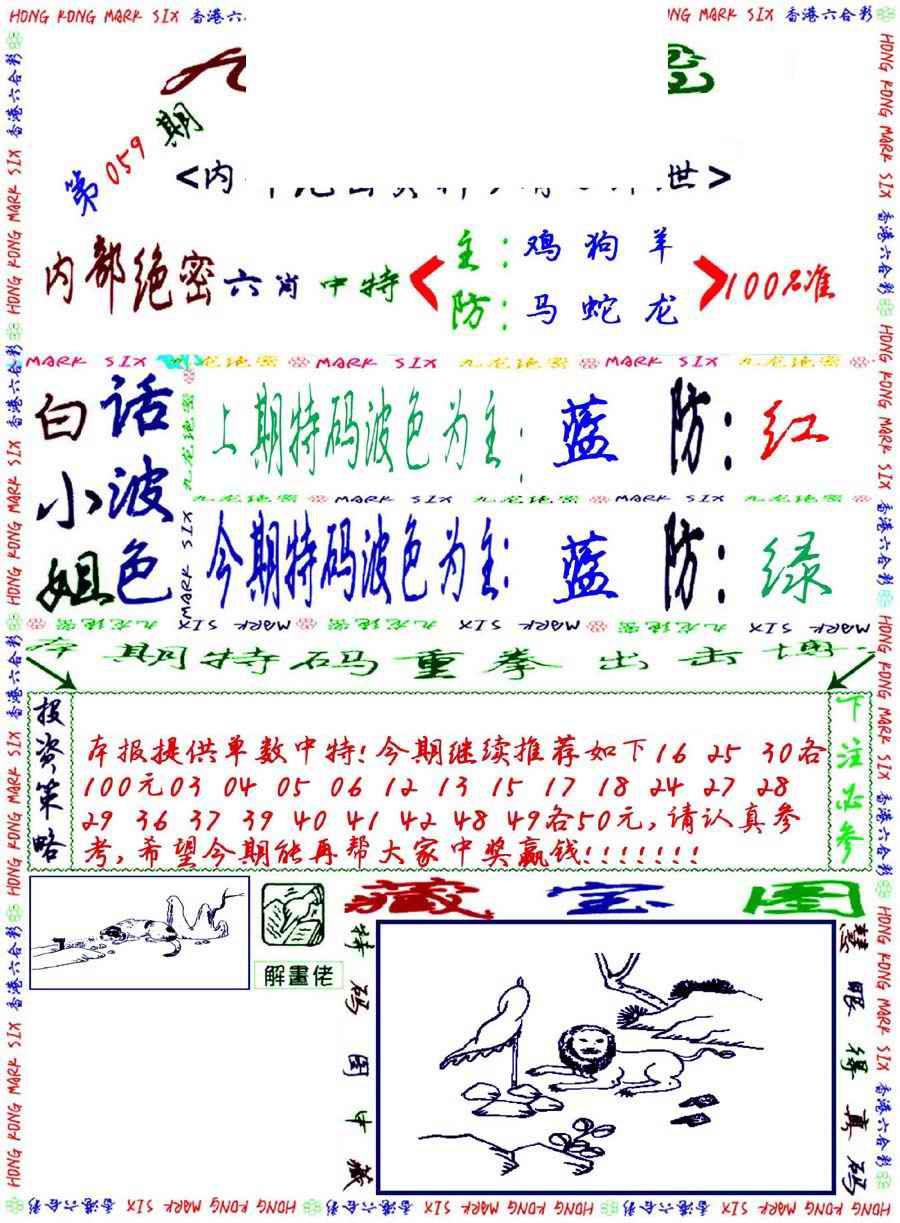 HONG KONG MARK SIX 香港六
NG MARK SIX 香港六合彩
第059期
<内
世>
内部绝密六肖中特
主:鸡狗羊
防:马蛇龙
100%准
MARK SIX 九龙绝密 MARK SIX 九龙绝密 MARK SIX 九龙绝密
白小姐
话波色
上期特码波色为主:蓝 防:红
九龙绝密 MARK SIX 九龙绝密 MARK SIX 九龙绝密
今期特码波色为主:蓝 防:绿
MARK SIX 九龙绝密 MARK SIX 九龙绝密 MARK SIX 九龙绝密
本期特码重拳出击
投资策略
本报提供单数中特!今期继续推荐如下16 25 30各
100元03 04 05 06 12 13 15 17 18 24 27 28
29 36 37 39 40 41 42 48 49各50元,请认真参
考,希望今期能再帮大家中奖赢钱!!!!!!!
下注必参
解畫佬
藏宝图
特码图中藏
慧眼得真码
HONG KONG MARK SIX 香港六合彩 HONG KONG MARK SIX 香港六合彩 HONG KONG MARK SIX 香港六合彩